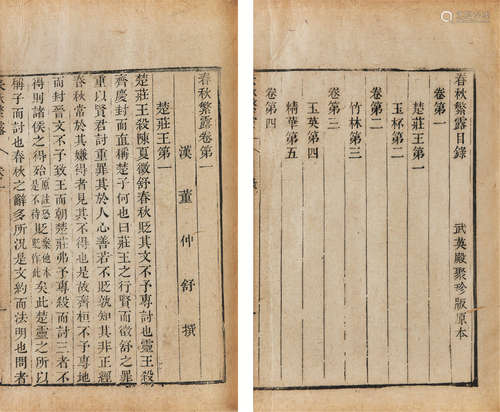 春秋繁露目錄
武英殿聚珍版原本
卷第一
楚莊王第一
玉杯第二
卷第二
竹林第三
卷第三
玉英第四
精華第五
卷第四
春秋繁露卷第一
漢 董仲舒 撰
楚莊王第一
楚莊王殺陳夏徵舒春秋貶其文不予專討也靈王殺
齊慶封而直稱楚子何也曰莊王之行賢而徵舒之罪
重以賢君討重罪其於人心善若不貶孰知其非正經
春秋常於其嫌得者見其不得也是故齊桓不予專地
而封晉文不予致王而朝楚莊弗予專殺而討三者不
得則諸侯之得殆此矣此楚靈之所以
稱子而討也春秋之辭多所況是文約而法明也問者